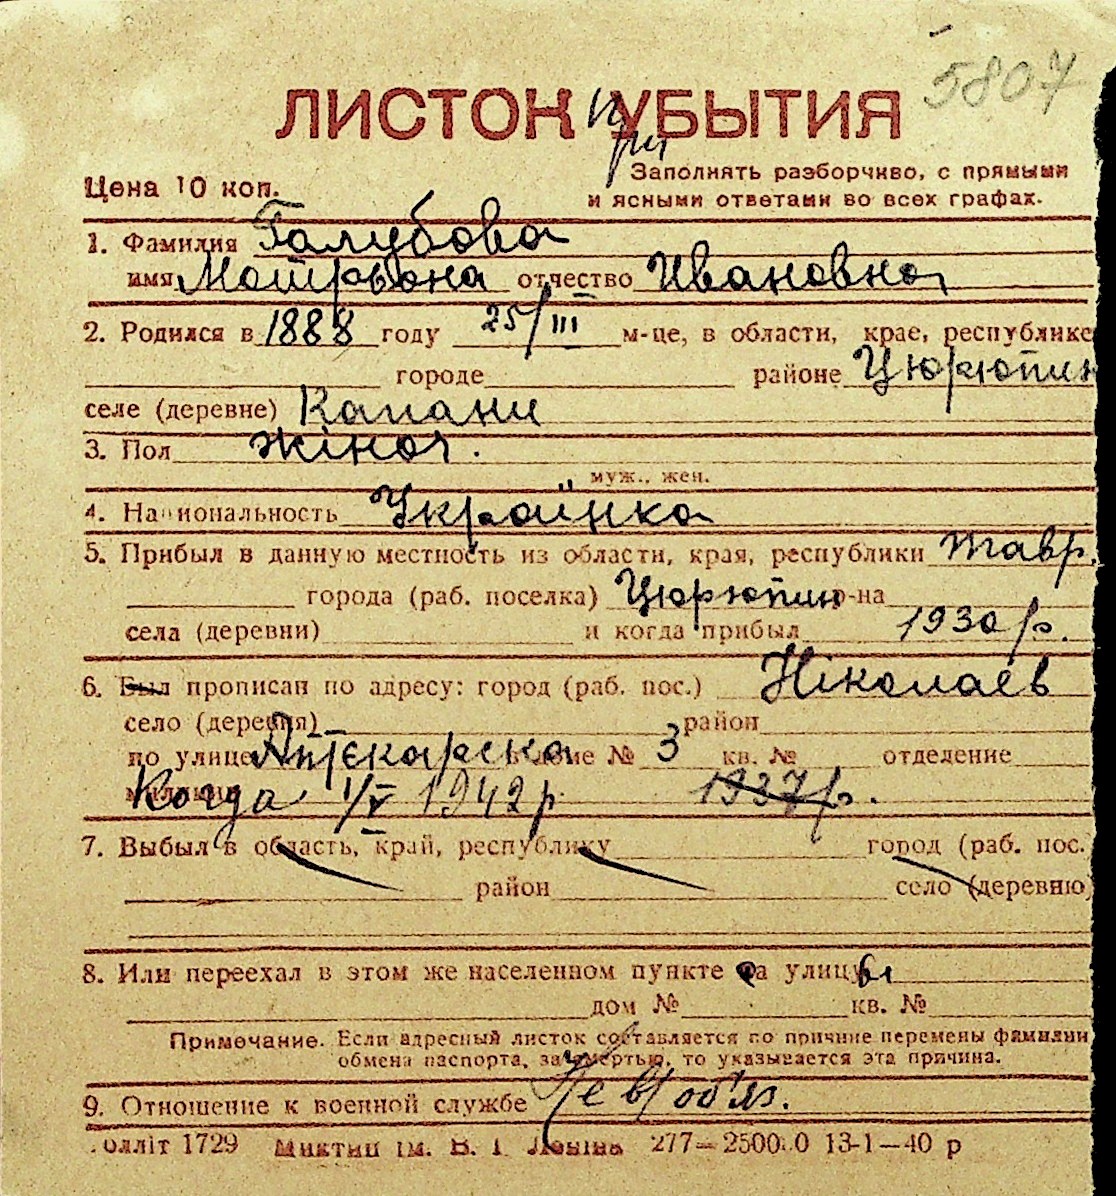 5807
ЛИСТОК УБЫТИЯ
при
Цена 10 коп.
Заполнять разборчиво, с прямыми
и ясными ответами во всех графах.
1. Фамилия Галубова
имя Мотрьона отчество Ивановна
2. Родился в 1888 году 25/III м-це, в области, крае, республике
городе районе Цюрюпин
селе (деревне) Капани
3. Пол жіноч.
муж., жен.
4. Национальность Украйнка
5. Прибыл в данную местность из области, края, республики Тавр.
города (раб. поселка) Цюрюпин р-на
села (деревни) и когда прибыл 1930 р.
6. Был прописан по адресу: город (раб. пос.) Ніколаєв
село (деревня) район
по улице Аптєкарска в доме № 3 кв. № отделение
Когда 1/V 1942 р. 1937 р.
7. Выбыл в область, край, республику город (раб. пос.
район село (деревню)
8. Или переехал в этом же населенном пункте с улицы
дом № кв. №
Примечание. Если адресный листок составляется по причине перемены фамилии
обмена паспорта, за смертью, то указывается эта причина.
9. Отношение к военной службе Не в/об'яз.
олліт 1729 ім. В. І. Леніна 277—2500 0 13-1—40 р